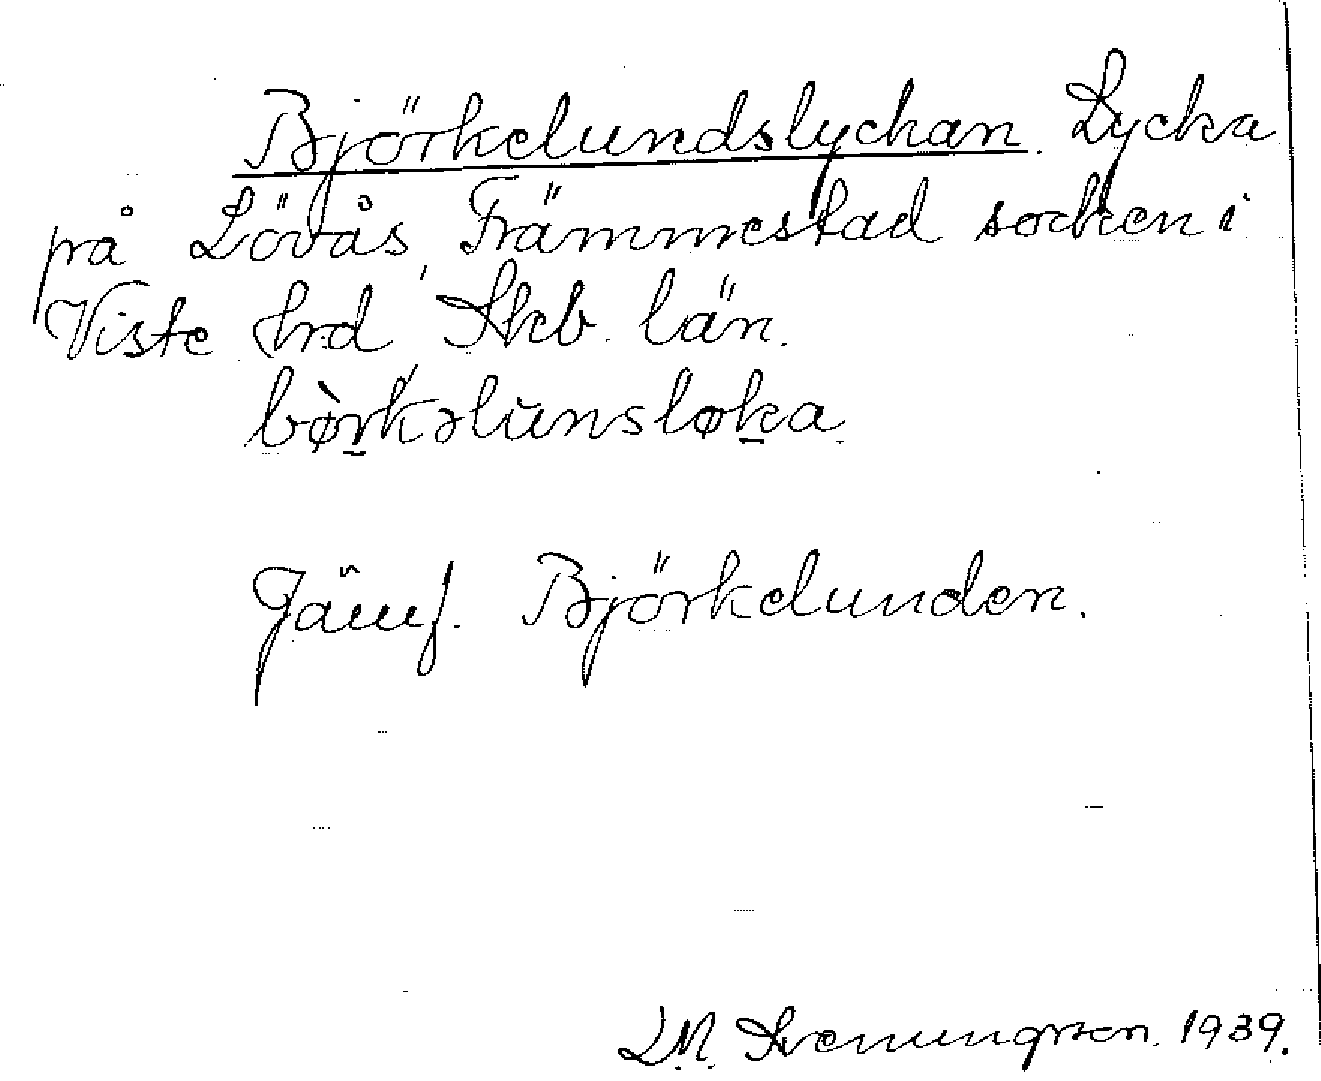 Björkelundslyckan. Lycka
på Lövås, Främmestad socken i
Viste hrd, Skb. län.
bø̀rkəlŭnsløka.
Jämf. Björkelunden.
L.M. Svenungsson. 1939.